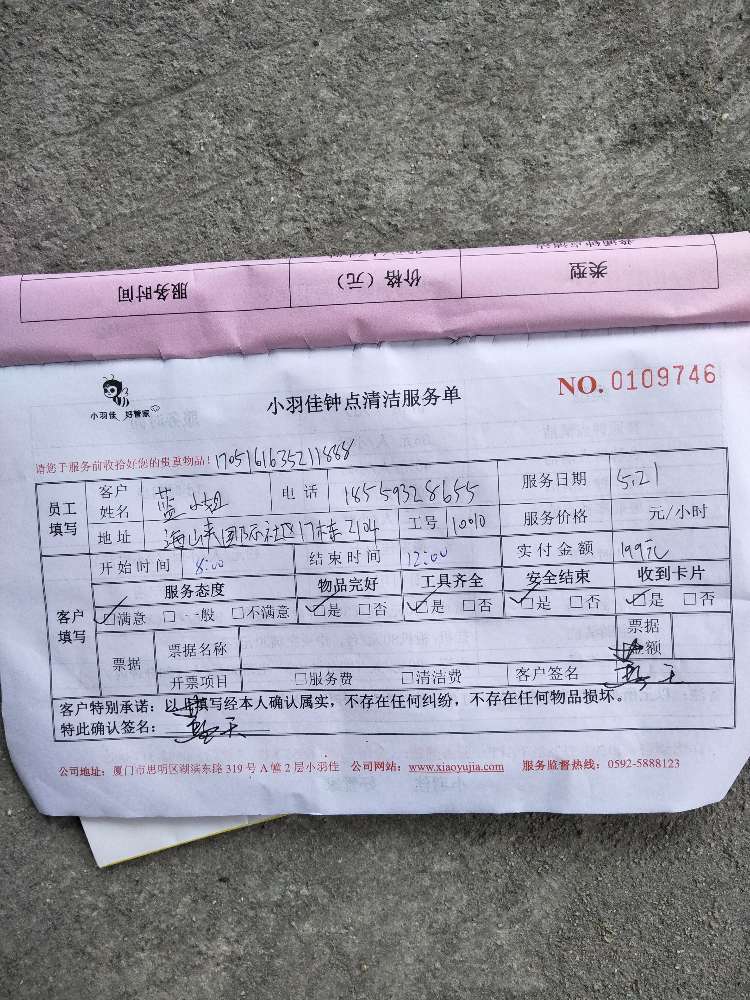 服务时间 价格（元） 类型
小羽佳 好管家
小羽佳钟点清洁服务单
NO. 0109746
请您于服务前收拾好您的贵重物品！1705161635211888
员工填写 客户姓名 蓝小姐 电话 18559328655 服务日期 5.21
地址 海山来国际社区17栋2104 工号 10010 服务价格 元/小时
客户填写 开始时间 8:00 结束时间 12:00 实付金额 199元
服务态度 物品完好 工具齐全 安全结束 收到卡片
☑满意 □一般 □不满意 ☑是 □否 ☑是 □否 ☑是 □否 ☑是 □否
票据 票据名称 票据金额
开票项目 □服务费 □清洁费 客户签名
客户特别承诺：以上填写经本人确认属实，不存在任何纠纷，不存在任何物品损坏。
特此确认签名：
公司地址：厦门市思明区湖滨东路 319 号 A 幢 2 层小羽佳 公司网站：www.xiaoyujia.com 服务监督热线：0592-5888123